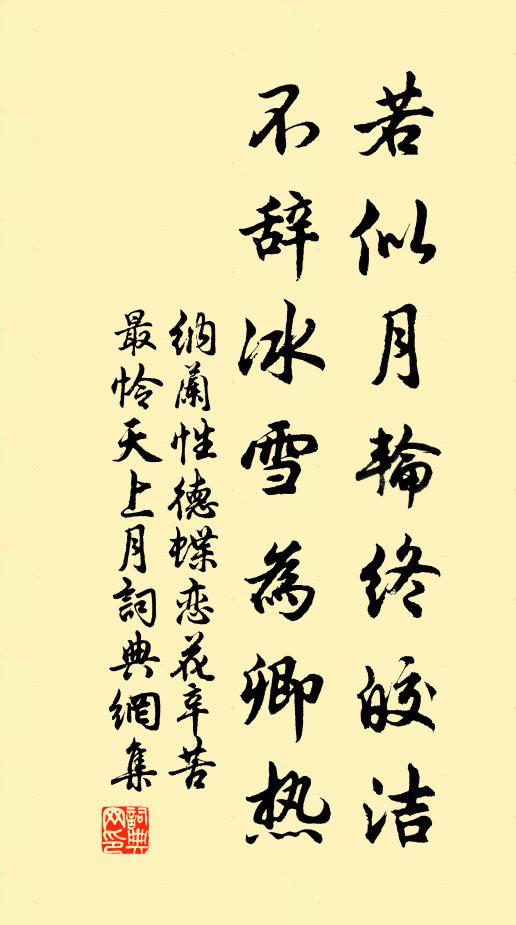 若似月輪终皎洁
不辞冰雪為卿热
纳蘭性德蝶恋花辛苦
最怜天上月詞典網集
詞典网印